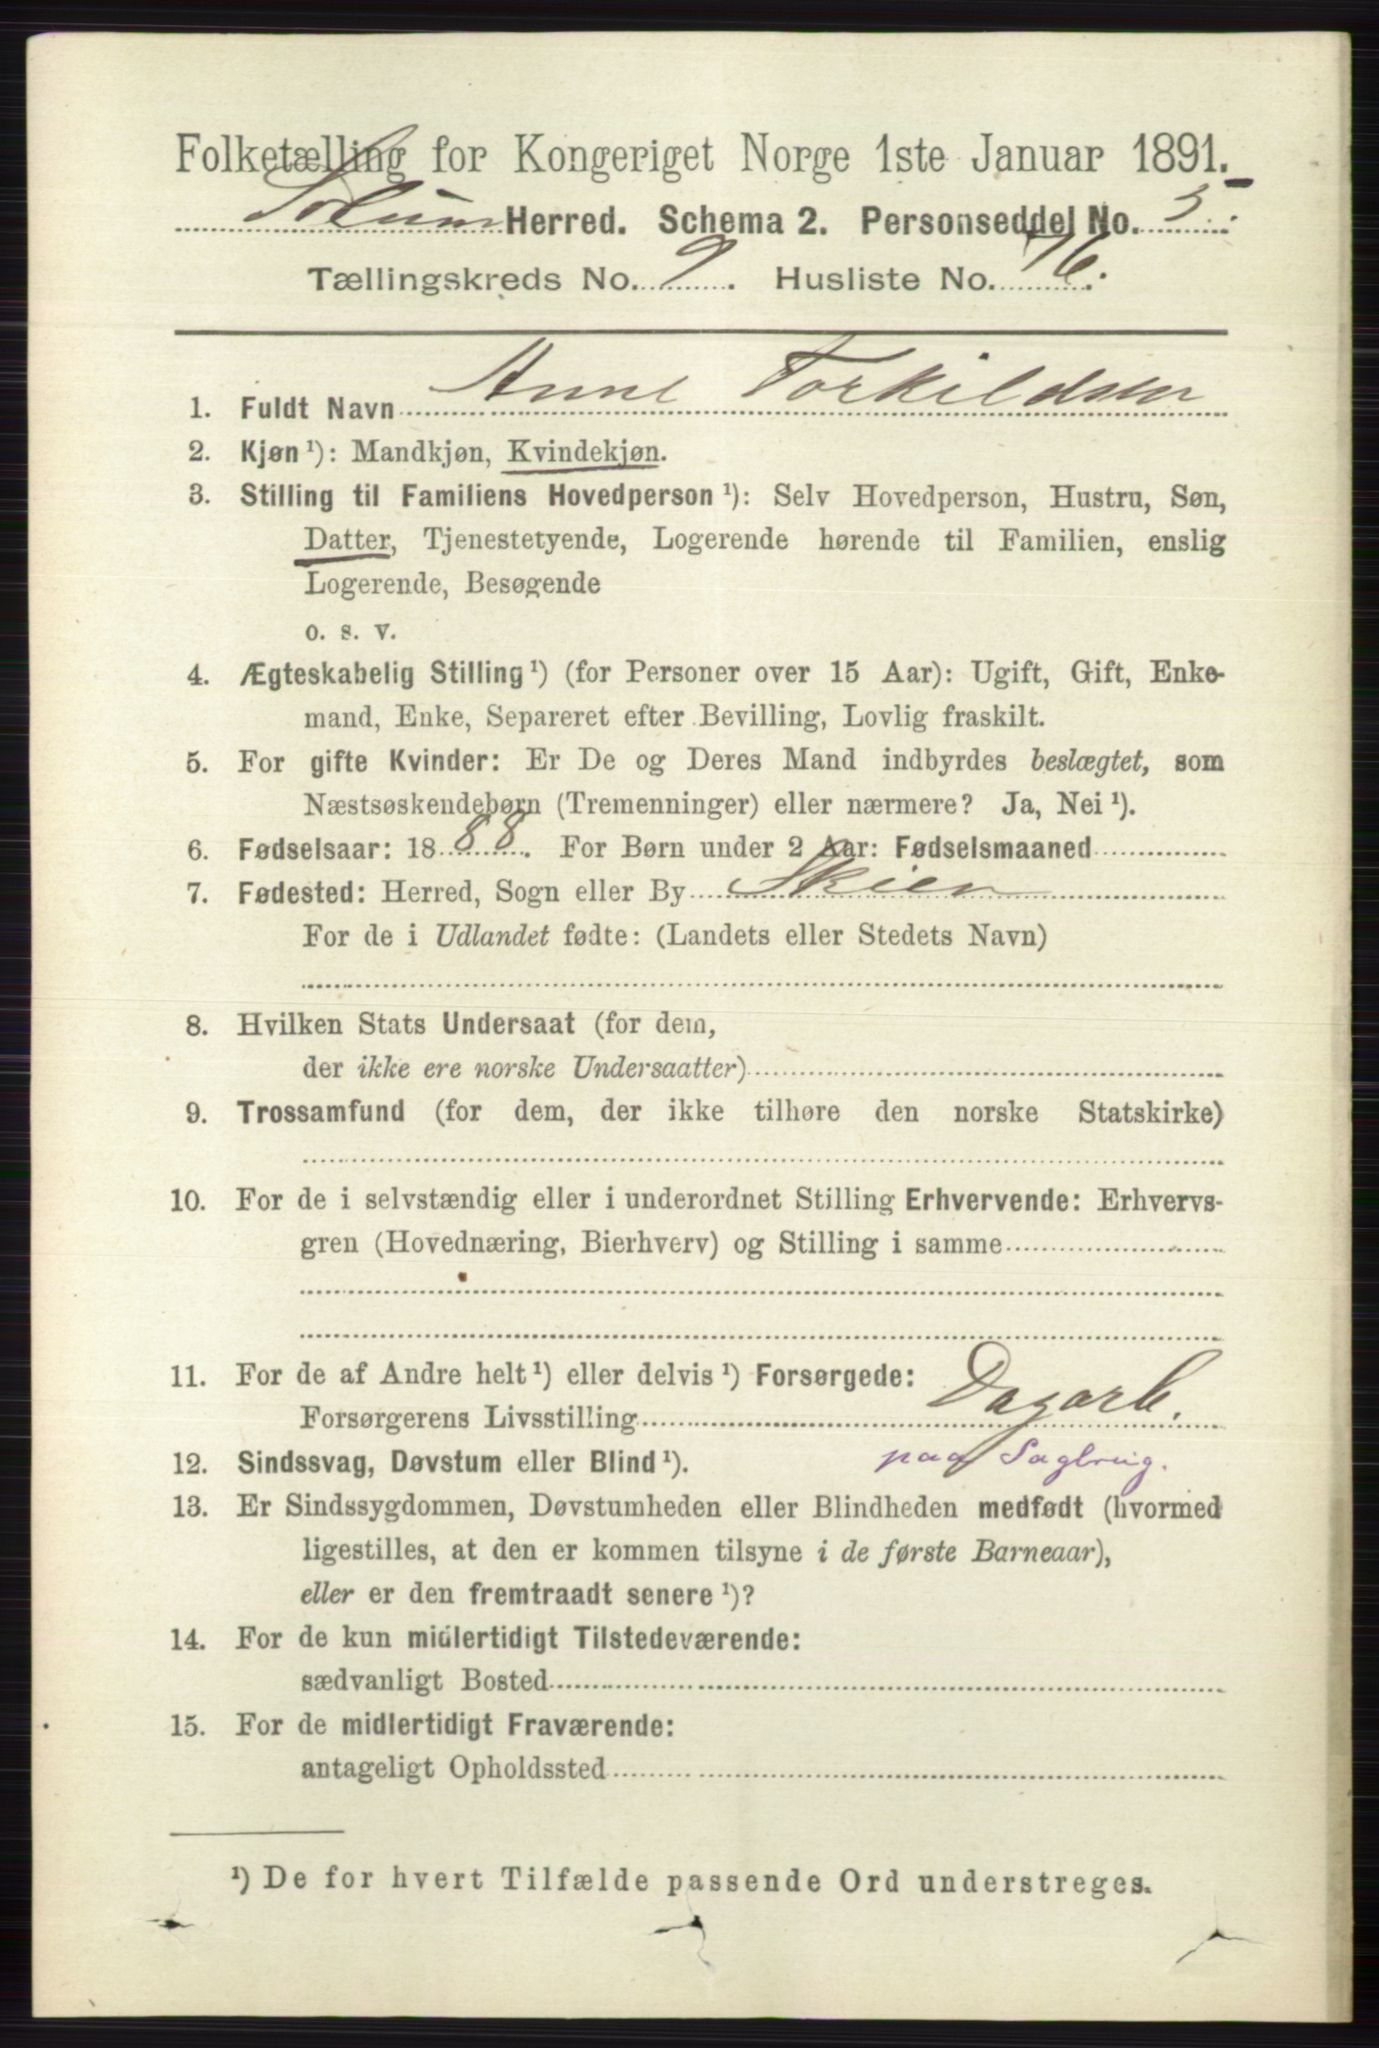 Folketælling for Kongeriget Norge 1ste Januar 1891.
Solum Herred. Schema 2. Personseddel No. 5.
Tællingskreds No. 9. Husliste No. 76.
1. Fuldt Navn Anne Torkildsen
2. Kjøn¹): Mandkjøn, Kvindekjøn.
3. Stilling til Familiens Hovedperson¹): Selv Hovedperson, Hustru, Søn,
Datter, Tjenestetyende, Logerende hørende til Familien, enslig
Logerende, Besøgende
o. s. v.
4. Ægteskabelig Stilling¹) (for Personer over 15 Aar): Ugift, Gift, Enke-
mand, Enke, Separeret efter Bevilling, Lovlig fraskilt.
5. For gifte Kvinder: Er De og Deres Mand indbyrdes beslægtet, som
Næstsøskendebørn (Tremenninger) eller nærmere? Ja, Nei¹).
6. Fødselsaar: 1888. For Børn under 2 Aar: Fødselsmaaned
7. Fødested: Herred, Sogn eller By Skien
For de i Udlandet fødte: (Landets eller Stedets Navn)
8. Hvilken Stats Undersaat (for dem,
der ikke ere norske Undersaatter)
9. Trossamfund (for dem, der ikke tilhøre den norske Statskirke)
10. For de i selvstændig eller i underordnet Stilling Erhvervende: Erhvervs-
gren (Hovednæring, Bierhverv) og Stilling i samme
11. For de af Andre helt¹) eller delvis¹) Forsørgede:
Forsørgerens Livsstilling Dagarb.
12. Sindssvag, Døvstum eller Blind¹). paa Sagbrug.
13. Er Sindssygdommen, Døvstumheden eller Blindheden medfødt (hvormed
ligestilles, at den er kommen tilsyne i de første Barneaar),
eller er den fremtraadt senere¹)?
14. For de kun midlertidigt Tilstedeværende:
sædvanligt Bosted
15. For de midlertidigt Fraværende:
antageligt Opholdssted
¹) De for hvert Tilfælde passende Ord understreges.